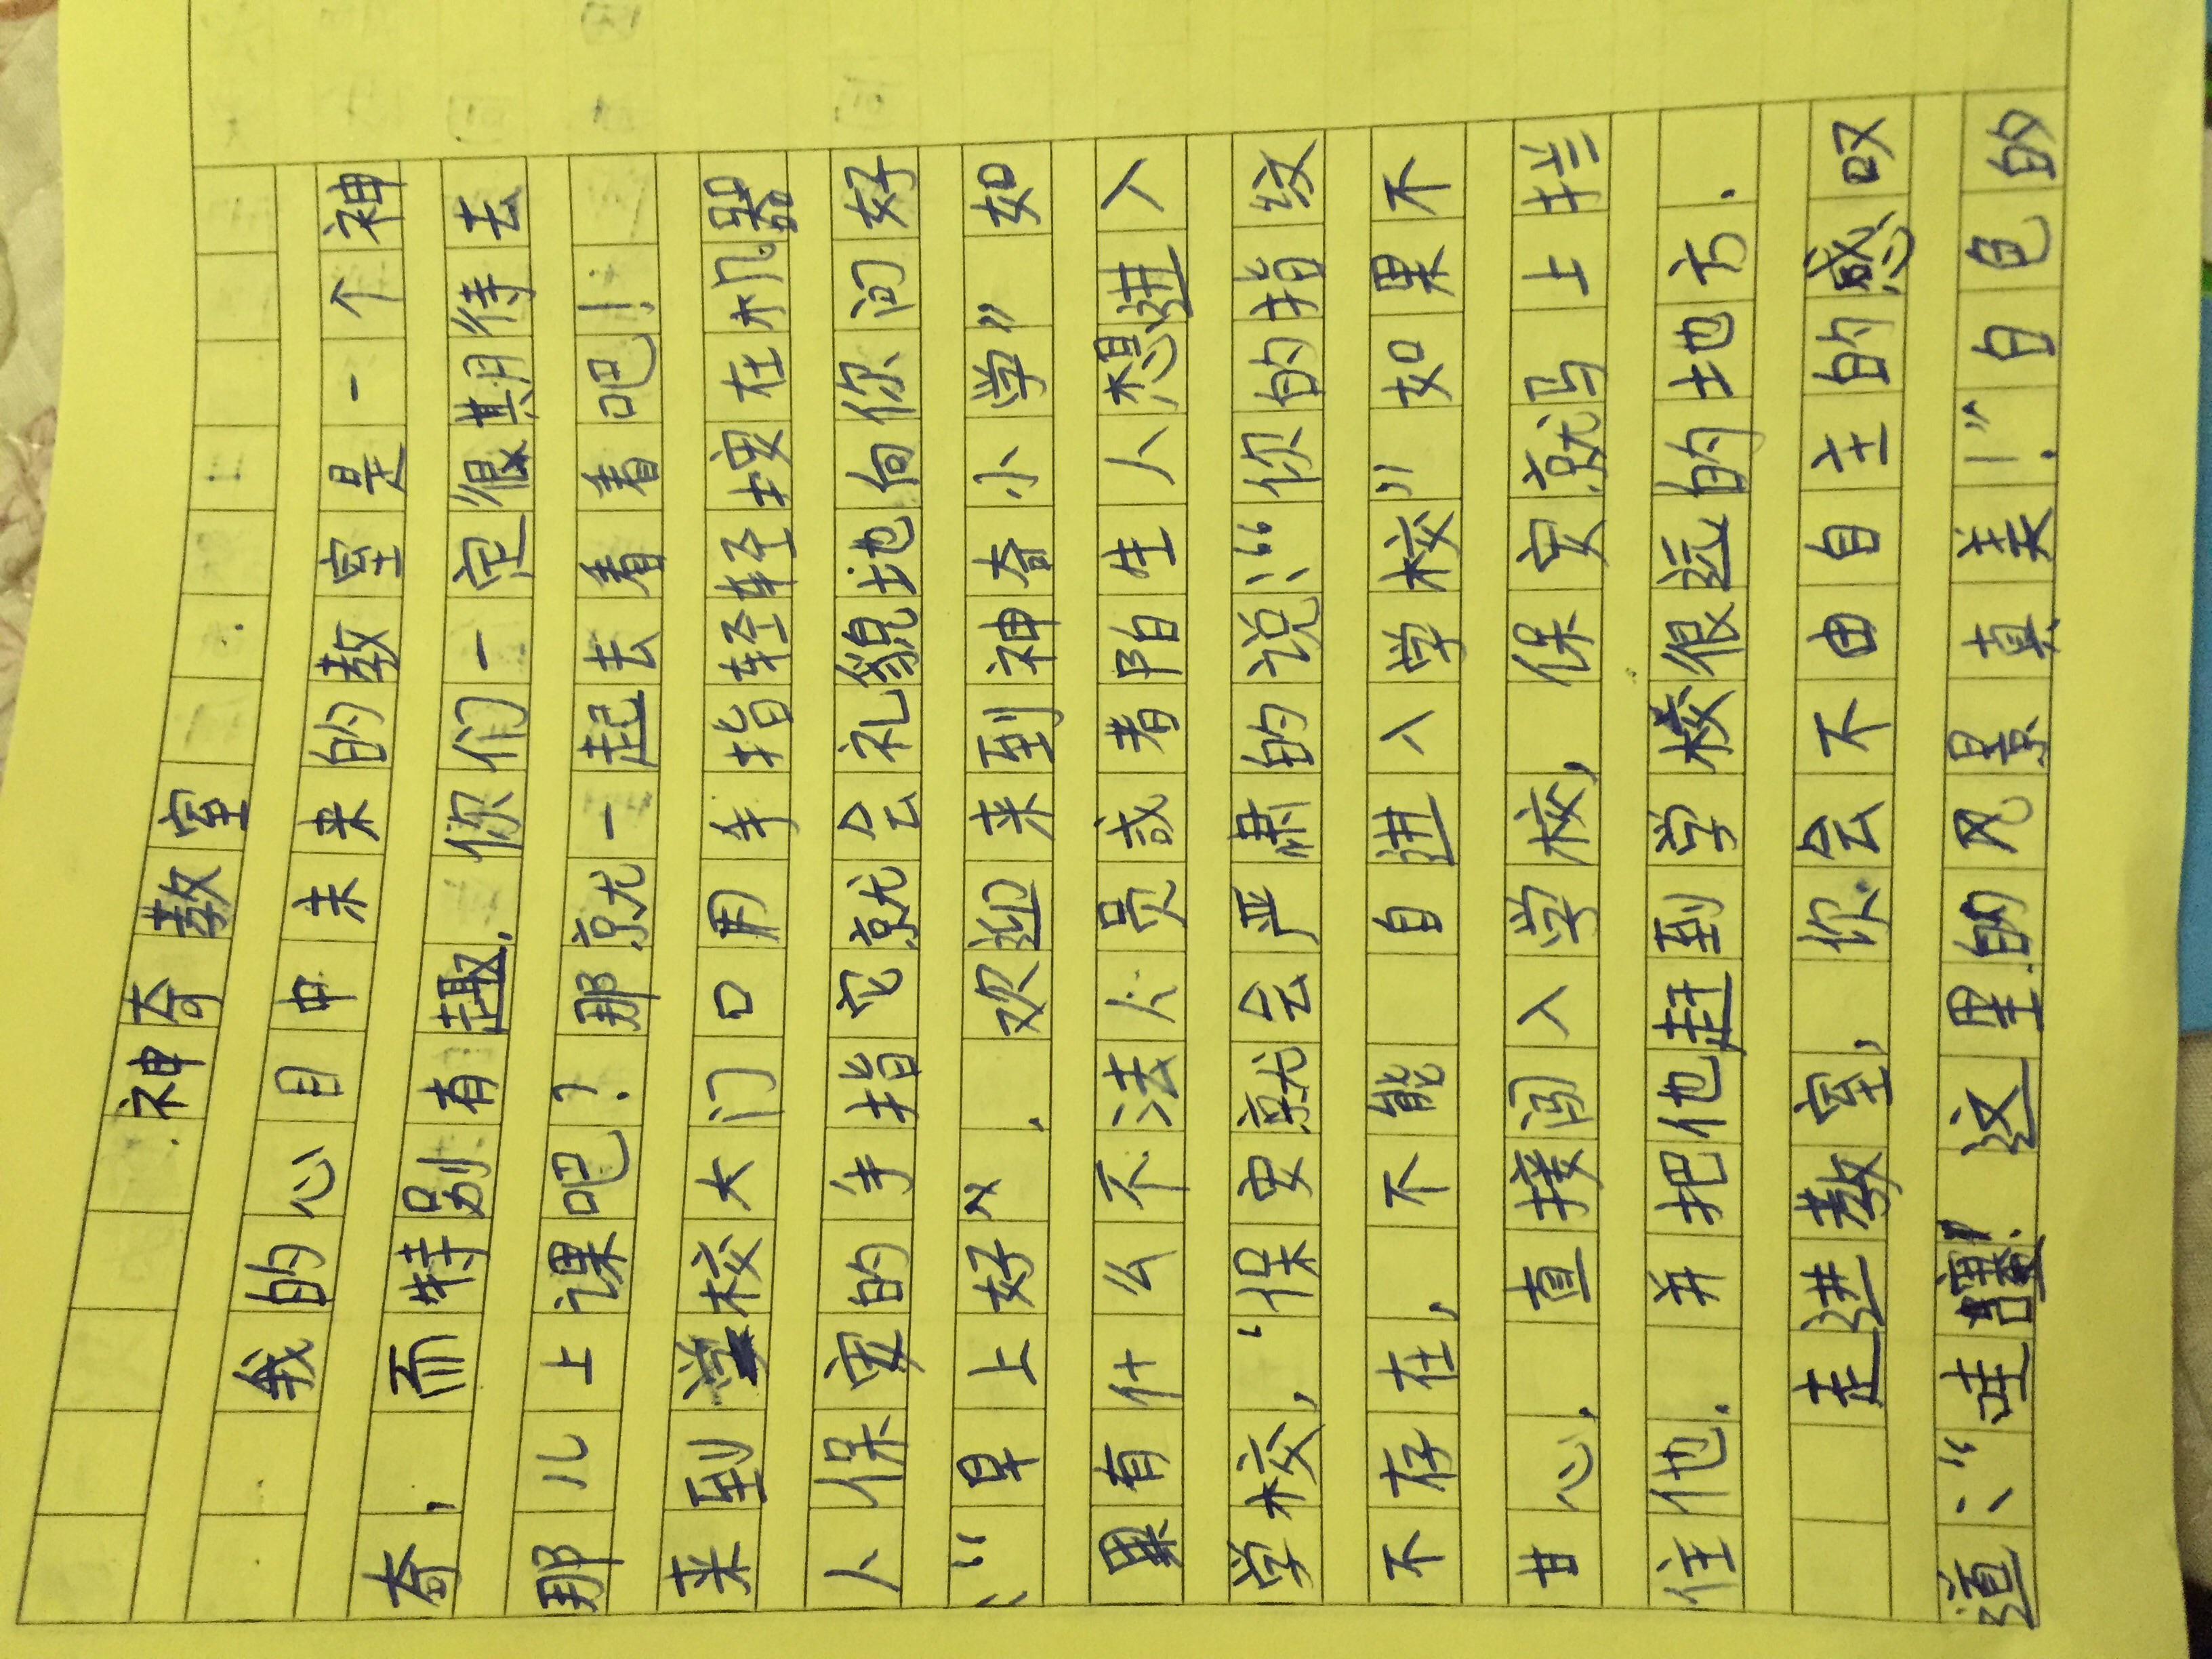 神奇教室
我的心目中未来的教室是一个神
奇，而特别有趣.你们一定很期待去
那儿上课吧？那就一起去看看吧！
来到学校大门口用手指轻轻按在机器
人保安的手指它就会礼貌地向你问好
：“早上好”.欢迎来到神奇小学”如
果有什么不法人员或者陌生人想进入
学校，‘保安就会严肃的说：“你的指纹
不存在，不能自进入学校”如果不
甘心.直接闯入学校，保安就马上拦
住他.并把他赶到学校很远的地方.
走进教室，你会不由自主的感叹
道：“哇！这里的风景真美！”白色的